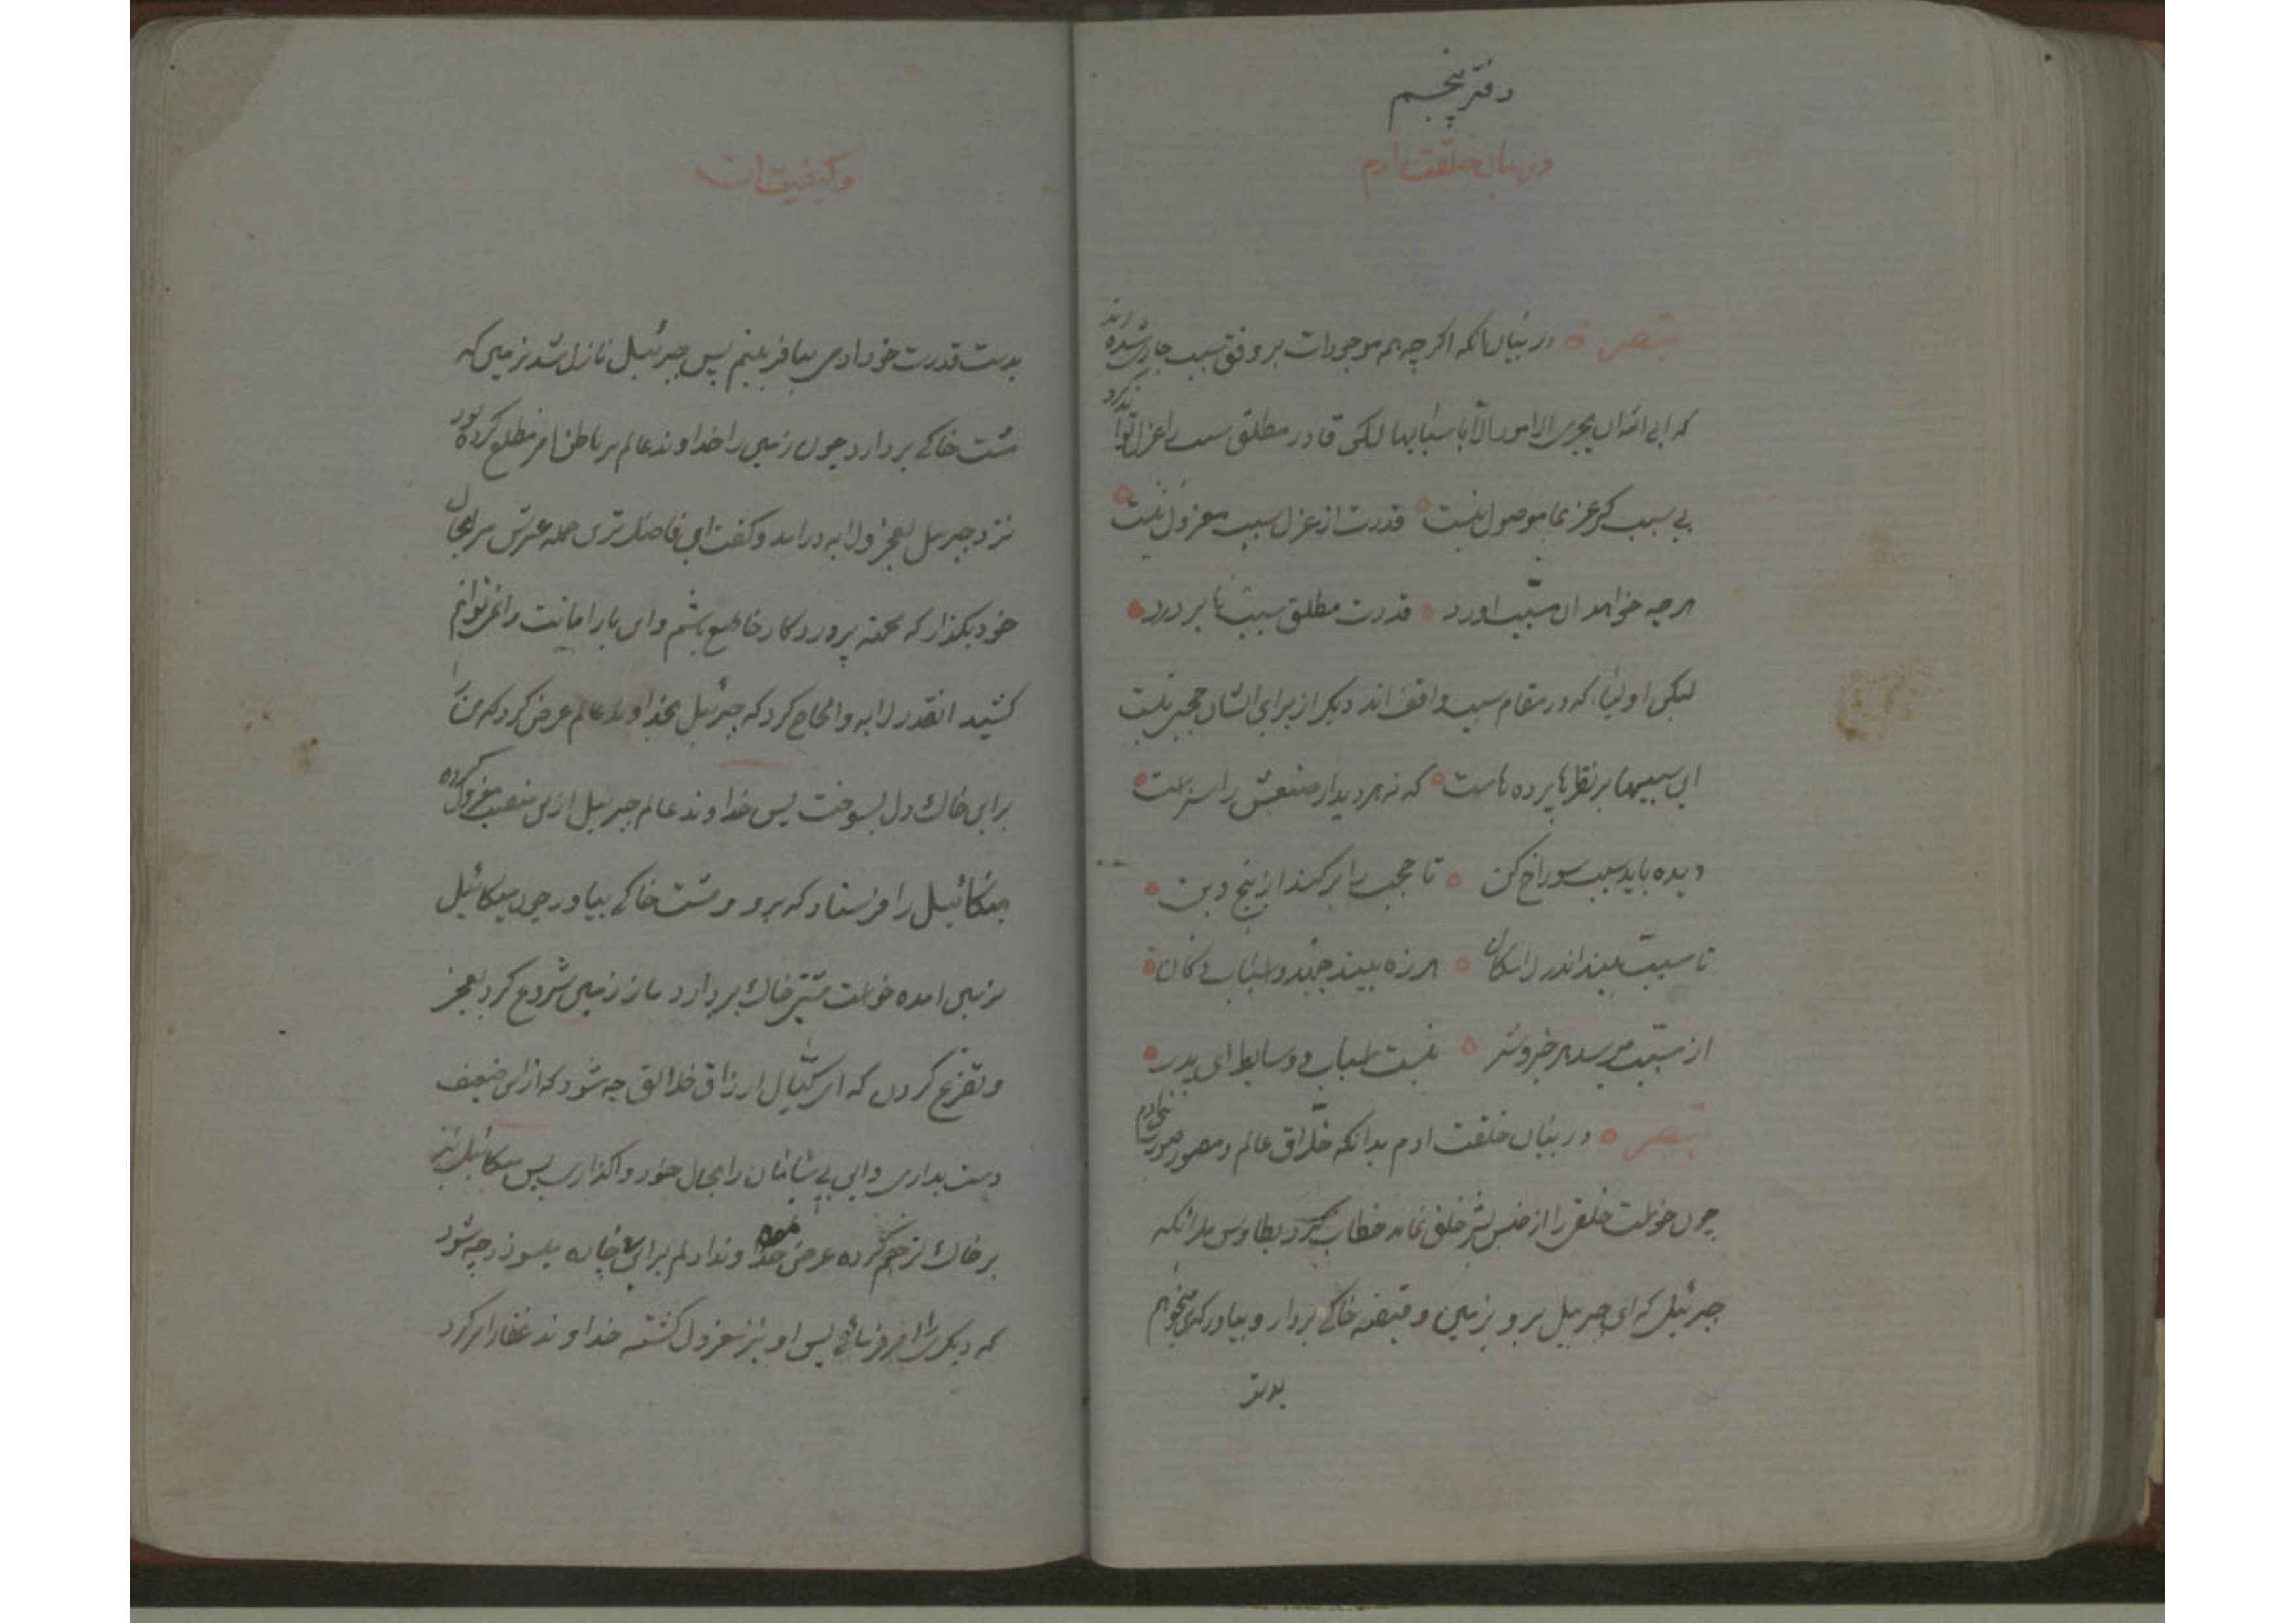 دفتر پنجم
در بیان خلقت ادم
تبصره در بیان انکه اکر چه همه موجودات بر وفق سبب جاری شده اند
که ابی الله ان یجری الامور الا باسبابها لکن قادر مطلق سبب را عزل تواند کرد
بی سبب کر عز بما موصول نیست قدرت از عزل سبب معزول نیست
هر چه خواهد ان مسبب اورد قدرت مطلق سببها بر درد
لیکن اولیا که در مقام سبب واقف اند دیکر از برای ایشان حجبی نیست
این سببها بر نظرها پرده هاست که نه هر دیدار صنعش را سزاست
دیده باید سبب سوراخ کن تا حجب را بر کند از بیخ و بن
تا مسبب بیند اندر لامکان هرزه بیند جهد و اسباب دکان
از مسبب میرسد هر خیر و شر نیست اسباب و وسایط ای پدر
تبصره در بیان خلقت ادم بدانکه خلاق عالم و مصور صورت بنی ادم
چون خواست خلقی را از جنس بشر خلق نماید خطاب کرد بطاوس ملائکه
جبرئیل که ای جبرئیل برو بزمین و قبضه خاکی بردار و بیاور که میخواهم
بدست
وکیفیت ان
بدست قدرت خود ادمی بیافرینم پس جبرئیل نازل شد بزمین که
مشت خاکی بردارد چون زمین را خداوند عالم بر باطن امر مطلع کرده بود
نزد جبرئیل بعجز و لابه درامد و کفت ای فاضلترین حمله عرش مرا بحال
خود بکذار که محنه پرورد کار خاطع باشم و این بار امانت را نمیتوانم
کشید انقدر لابه و الحاح کرد که جبرئیل بخداوند عالم عرض کرد که مرا
برای خاک دل بسوخت پس خداوند عالم جبرئیل ازین منصب معزول کرده
میکائیل را فرستاد که برو و مشت خاکی بیاور چون میکائیل
بزمین امده خواست مشتی خاک بردارد باز زمین شروع کرد بعجز
و تضرع کردن که ای کیال ارزاق خلایق چه شود که از این ضعیف
دست بداری و این بی سامان را بحال خود واکذاری پس میکائیل نیز
بر خاک ترحم کرده عرض نمود خداوندا دلم برای خاک میسوزد چه شود
که دیکری را امر فرمائی پس او نیز معزول کشته خداوند غفار امر کرد